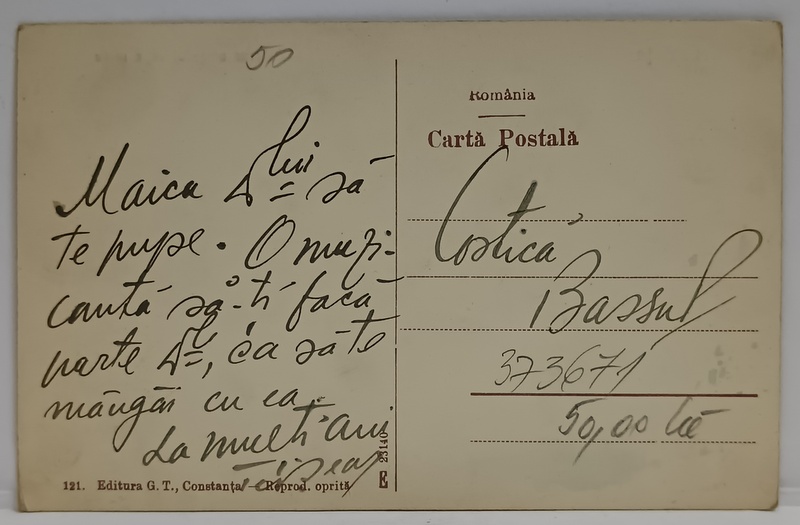 50
Maica D-lui să
te pupe. O muzi-
cantă să-ți facă
parte D-l, ca să te
mângâi cu ea.
La mulți ani
121. Editura G. T., Constanța — Reprod. oprită
23140
E
România
Cartă Postală
Costică
Bassul
373671
50,00 lei